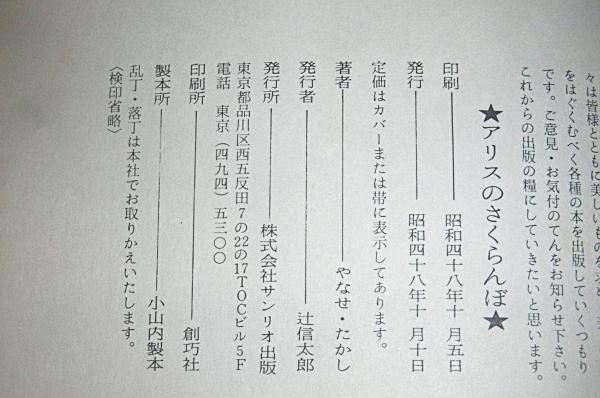 々は皆様とともに美しいものを求め、
をはぐくむべく各種の本を出版していくつもり
です。ご意見・お気付のてんをお知らせ下さい。
これからの出版の糧にしていきたいと思います。
★アリスのさくらんぼ★
印刷 昭和四十八年十月五日
発行 昭和四十八年十月十日
定価はカバーまたは帯に表示してあります。
著者 やなせ・たかし
発行者 辻信太郎
発行所 株式会社サンリオ出版
東京都品川区西五反田7の22の17TOCビル5F
電話 東京(四九四)五三〇〇
印刷所 創巧社
製本所 小山内製本
乱丁・落丁は本社でお取りかえいたします。
〈検印省略〉